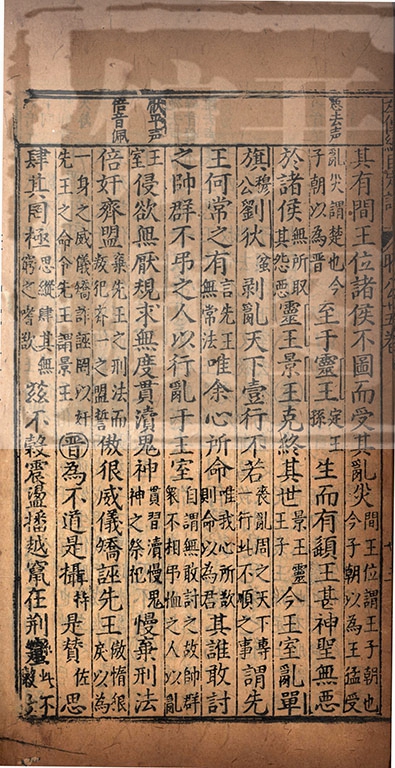 昭公五卷
惡去声
其有間王位諸侯不圖而受其亂災間王位謂王子朝也今子朝以為王猛受
亂災謂楚也今子朝以為晉至于靈王定王孫生而有頿王甚神聖無惡
於諸侯無所取其怨惡靈王景王克終其世景王靈王子今王室亂單
旗穆公劉狄蚠剥亂天下壹行不若喪亂周之天下專一行此不順之事謂先
王何常之有言先王無常法唯余心所命唯我心所欲則命以為君其誰敢討
之帥群不弔之人以行亂于王室自謂無敢討之故帥群衆不相弔恤之人以亂
平声
王室侵欲無厭規求無度貫瀆鬼神貫習瀆慢鬼神之祭祀慢棄刑法
倍音佩
倍奸齊盟棄先王之刑法而叛犯齊一之盟誓傲很威儀矯誣先王傲惰很戾以為
一身之威儀矯詐誣罔以奸先王之命令先王謂景王晉為不道是攝攝持是贊佐思
肆其罔極思縱肆其無窮之嗜欲兹不穀震盪播越竄在荆蠻此不